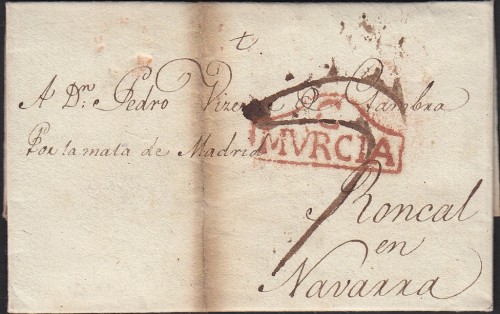 A Dn. Pedro Vizente Gambra
Por la mala de Madrid
C
MVRCIA
Roncal
en
Navarra